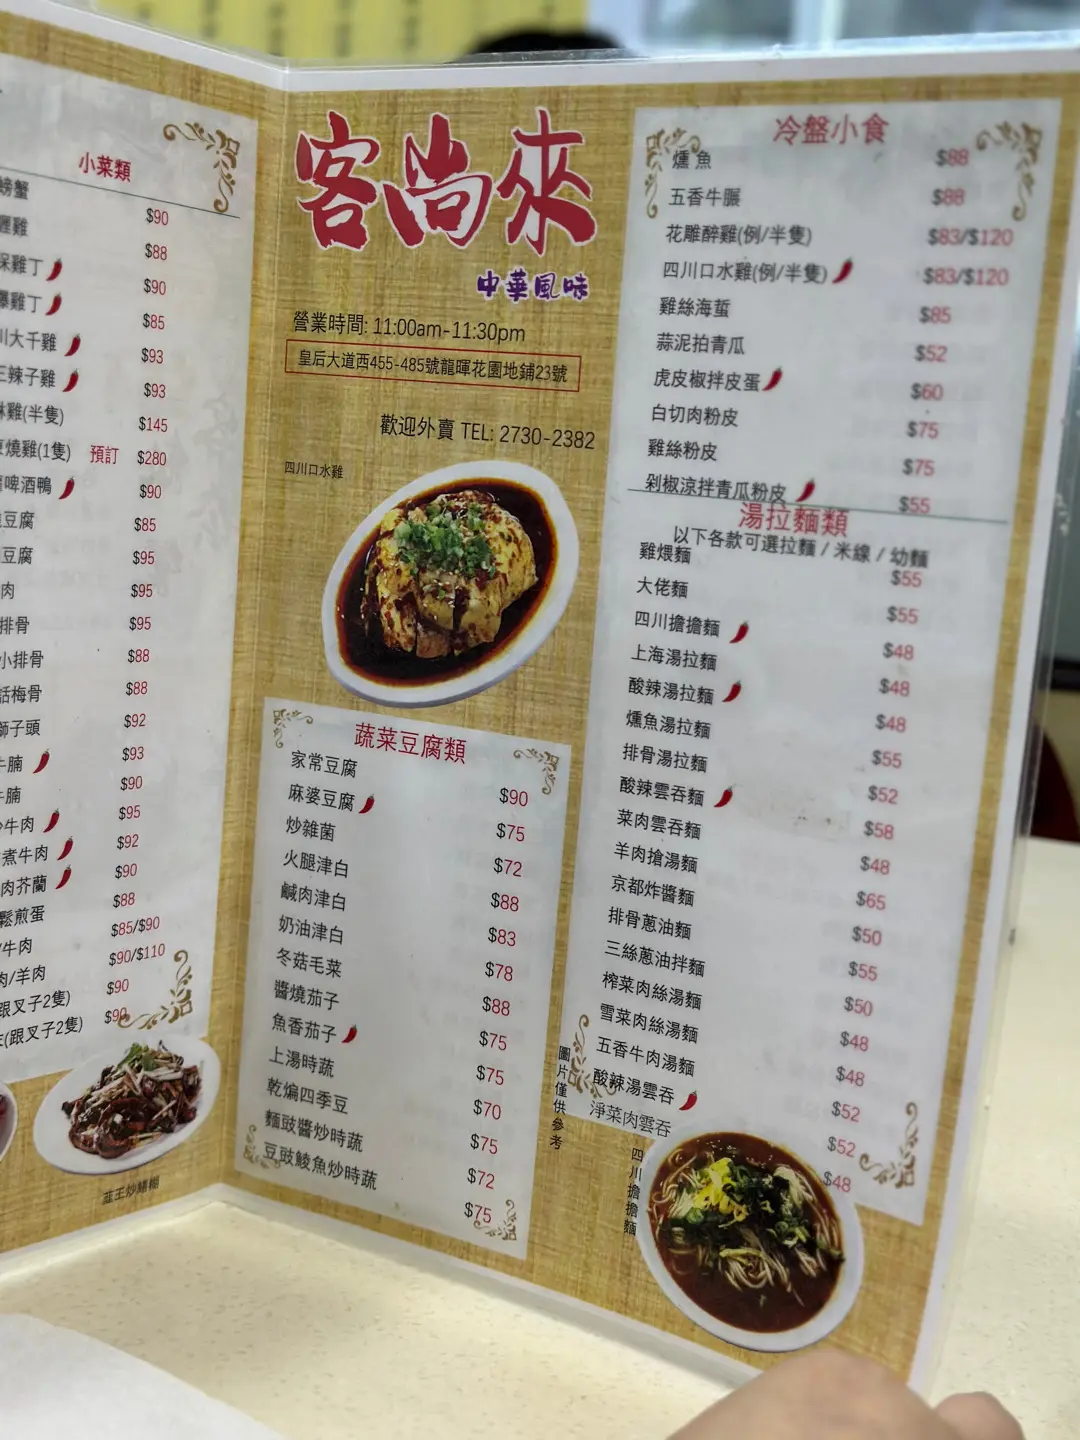 小菜類
螃蟹 $90
雞 $88
雞丁 $90
爆雞丁 $85
川大千雞 $93
辣子雞 $93
雞(半隻) $145
燒雞(1隻) 預訂 $280
啤酒鴨 $90
豆腐 $85
豆腐 $95
肉 $95
排骨 $95
小排骨 $88
話梅骨 $88
獅子頭 $92
牛腩 $93
牛腩 $90
牛肉 $95
煮牛肉 $92
肉芥蘭 $90
鬆煎蛋 $88
/牛肉 $85/$90
肉/羊肉 $90/$110
(跟叉子2隻) $90
(跟叉子2隻) $90
客尚來
中華風味
營業時間: 11:00am-11:30pm
皇后大道西455-485號龍暉花園地鋪23號
歡迎外賣 TEL: 2730-2382
四川口水雞
蔬菜豆腐類
家常豆腐 $90
麻婆豆腐 $75
炒雜菌 $72
火腿津白 $88
鹹肉津白 $83
奶油津白 $78
冬菇毛菜 $88
醬燒茄子 $75
魚香茄子 $75
上湯時蔬 $70
乾煸四季豆 $75
麵豉醬炒時蔬 $72
豆豉鯪魚炒時蔬 $75
冷盤小食
燻魚 $88
五香牛𦟌 $88
花雕醉雞(例/半隻) $83/$120
四川口水雞(例/半隻) $83/$120
雞絲海蜇 $85
蒜泥拍青瓜 $52
虎皮椒拌皮蛋 $60
白切肉粉皮 $75
雞絲粉皮 $75
剁椒涼拌青瓜粉皮 $55
湯拉麵類
以下各款可選拉麵 / 米線 / 幼麵
雞煨麵 $55
大佬麵 $55
四川擔擔麵 $48
上海湯拉麵 $48
酸辣湯拉麵 $48
燻魚湯拉麵 $55
排骨湯拉麵 $52
酸辣雲吞麵 $58
菜肉雲吞麵 $48
羊肉搶湯麵 $65
京都炸醬麵 $50
排骨蔥油麵 $55
三絲蔥油拌麵 $50
榨菜肉絲湯麵 $48
雪菜肉絲湯麵 $48
五香牛肉湯麵 $52
酸辣湯雲吞 $52
淨菜肉雲吞 $48
圖片僅供參考
四川擔擔麵